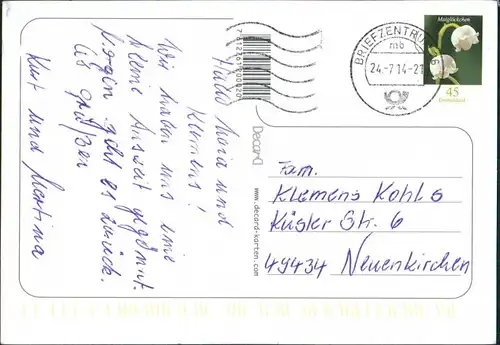 Hallo Maria und
Klemens!
Wir haben uns eine
kleine Auszeit gegönnt.
Morgen geht es zurück.
LG grüßen
Kurt und Martina
7 612261 200020
Decard
www.decard-karten.com
BRIEFZENTRUM
mb
24-7.14-21
Maiglöckchen
45
Deutschland
Fam.
Klemens Kohls
Küsler Str. 6
49434 Neuenkirchen